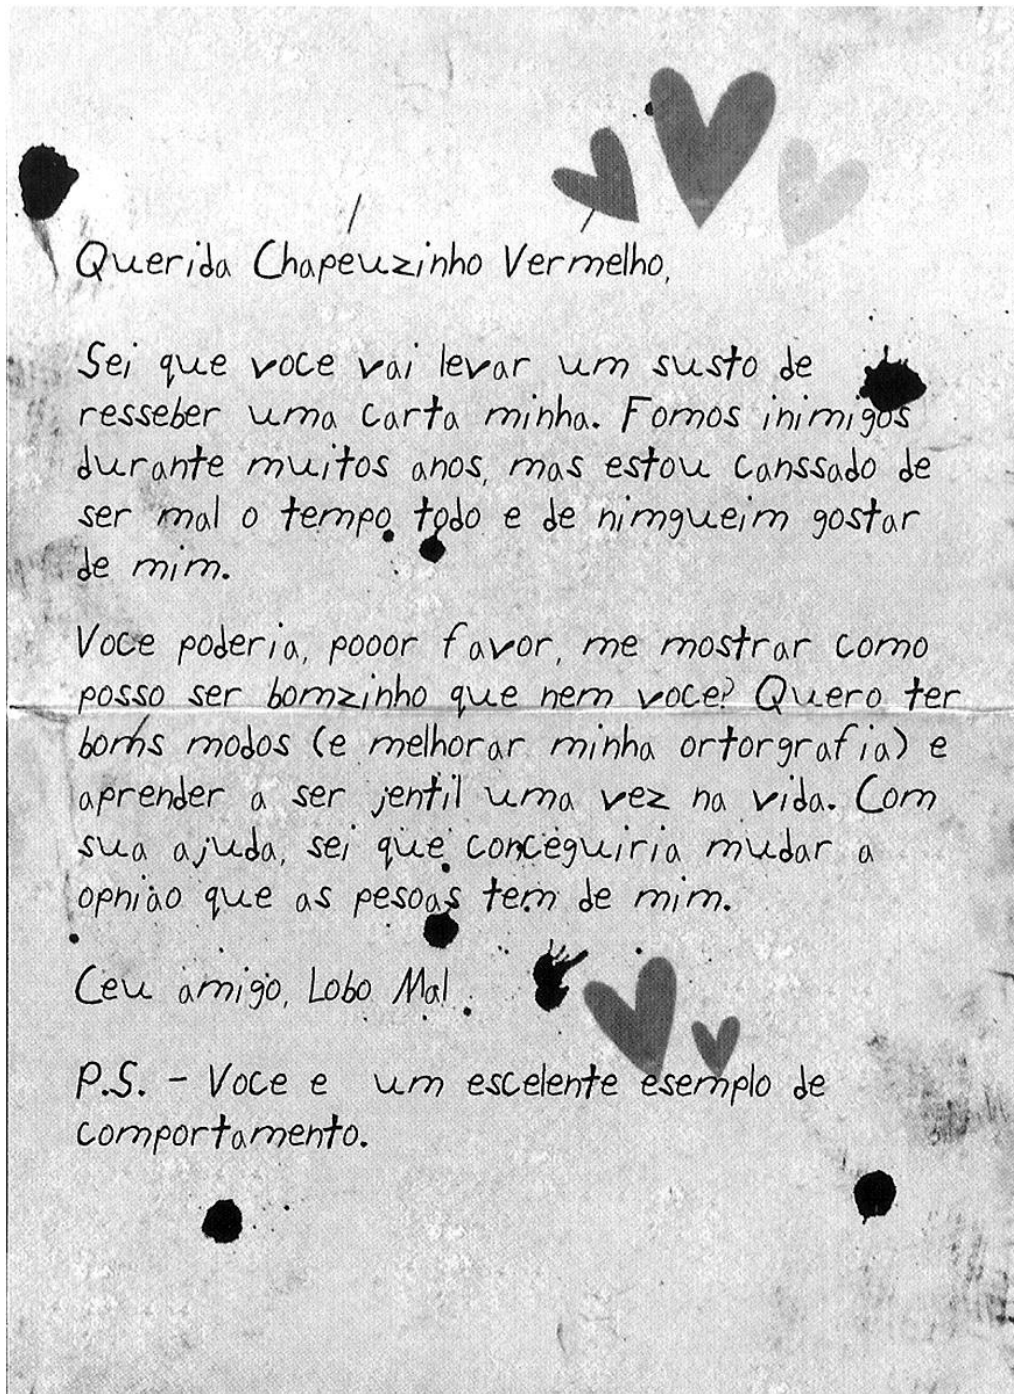 Querida Chapeuzinho Vermelho,
Sei que voce vai levar um susto de
resseber uma carta minha. Fomos inimigos
durante muitos anos, mas estou canssado de
ser mal o tempo todo e de nimgueim gostar
de mim.
Voce poderia, pooor favor, me mostrar como
posso ser bomzinho que nem voce? Quero ter
boms modos (e melhorar minha ortorgrafia) e
aprender a ser jentil uma vez na vida. Com
sua ajuda, sei que conceguiria mudar a
opnião que as pesoas tem de mim.
Ceu amigo, Lobo Mal
P.S. - Voce e um escelente esemplo de
comportamento.